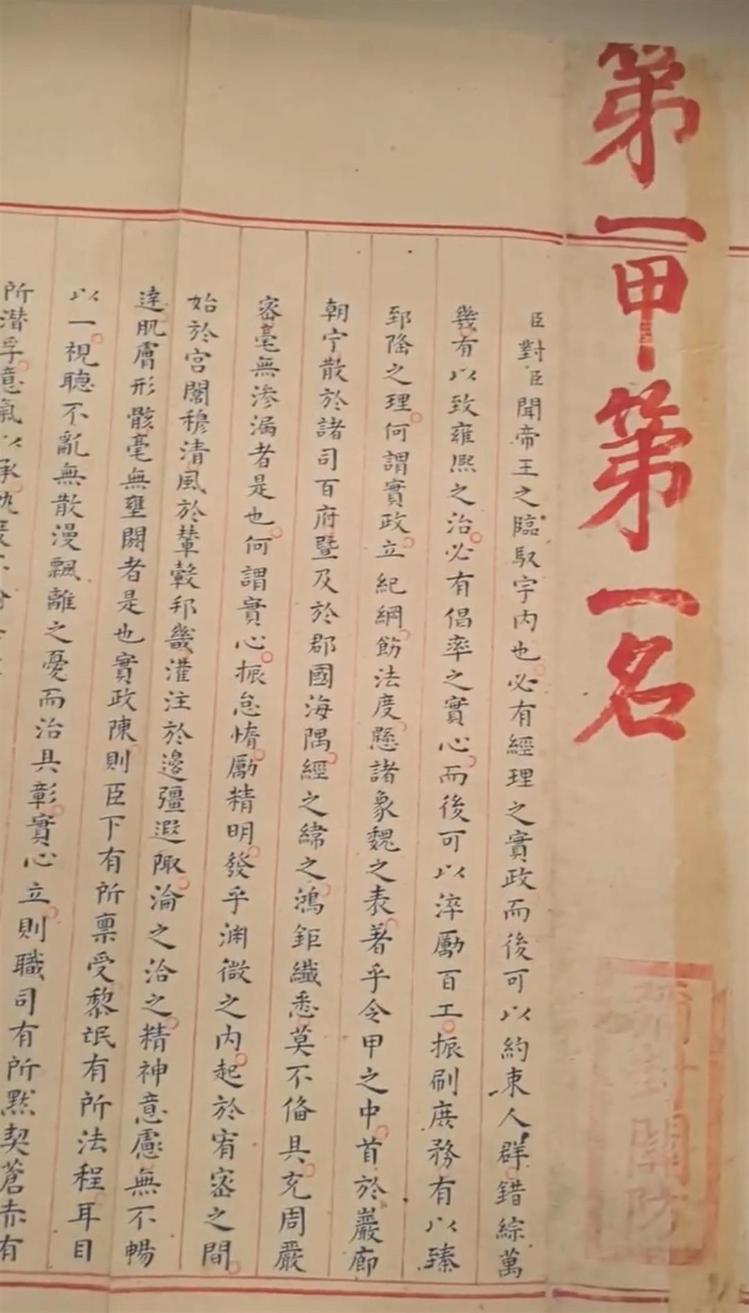 第一甲第一名
彌封關防
臣對臣聞帝王之臨馭宇內也必有經理之實政而後可以約束人群錯綜萬
幾有以致雍熙之治必有倡率之實心而後可以淬勵百工振刷庶務有以臻
郅隆之理何謂實政立紀綱飭法度懸諸象魏之表著乎令甲之中首於巖廊
朝宁散於諸司百府暨及於郡國海隅經之緯之鴻鉅纖悉莫不備具充周嚴
密毫無滲漏者是也何謂實心振怠惰勵精明發乎淵微之內起於宥密之間
始於宮闈穆清風於輦轂邦畿灌注於邊疆遐陬淪之洽之精神意慮無不暢
達肌膚形骸毫無壅閼者是也實政陳則臣下有所稟受黎氓有所法程耳目
以一視聽不亂無散漫飄離之憂而治具彰實心立則職司有所默契蒼赤有
所潛孚意氣以承